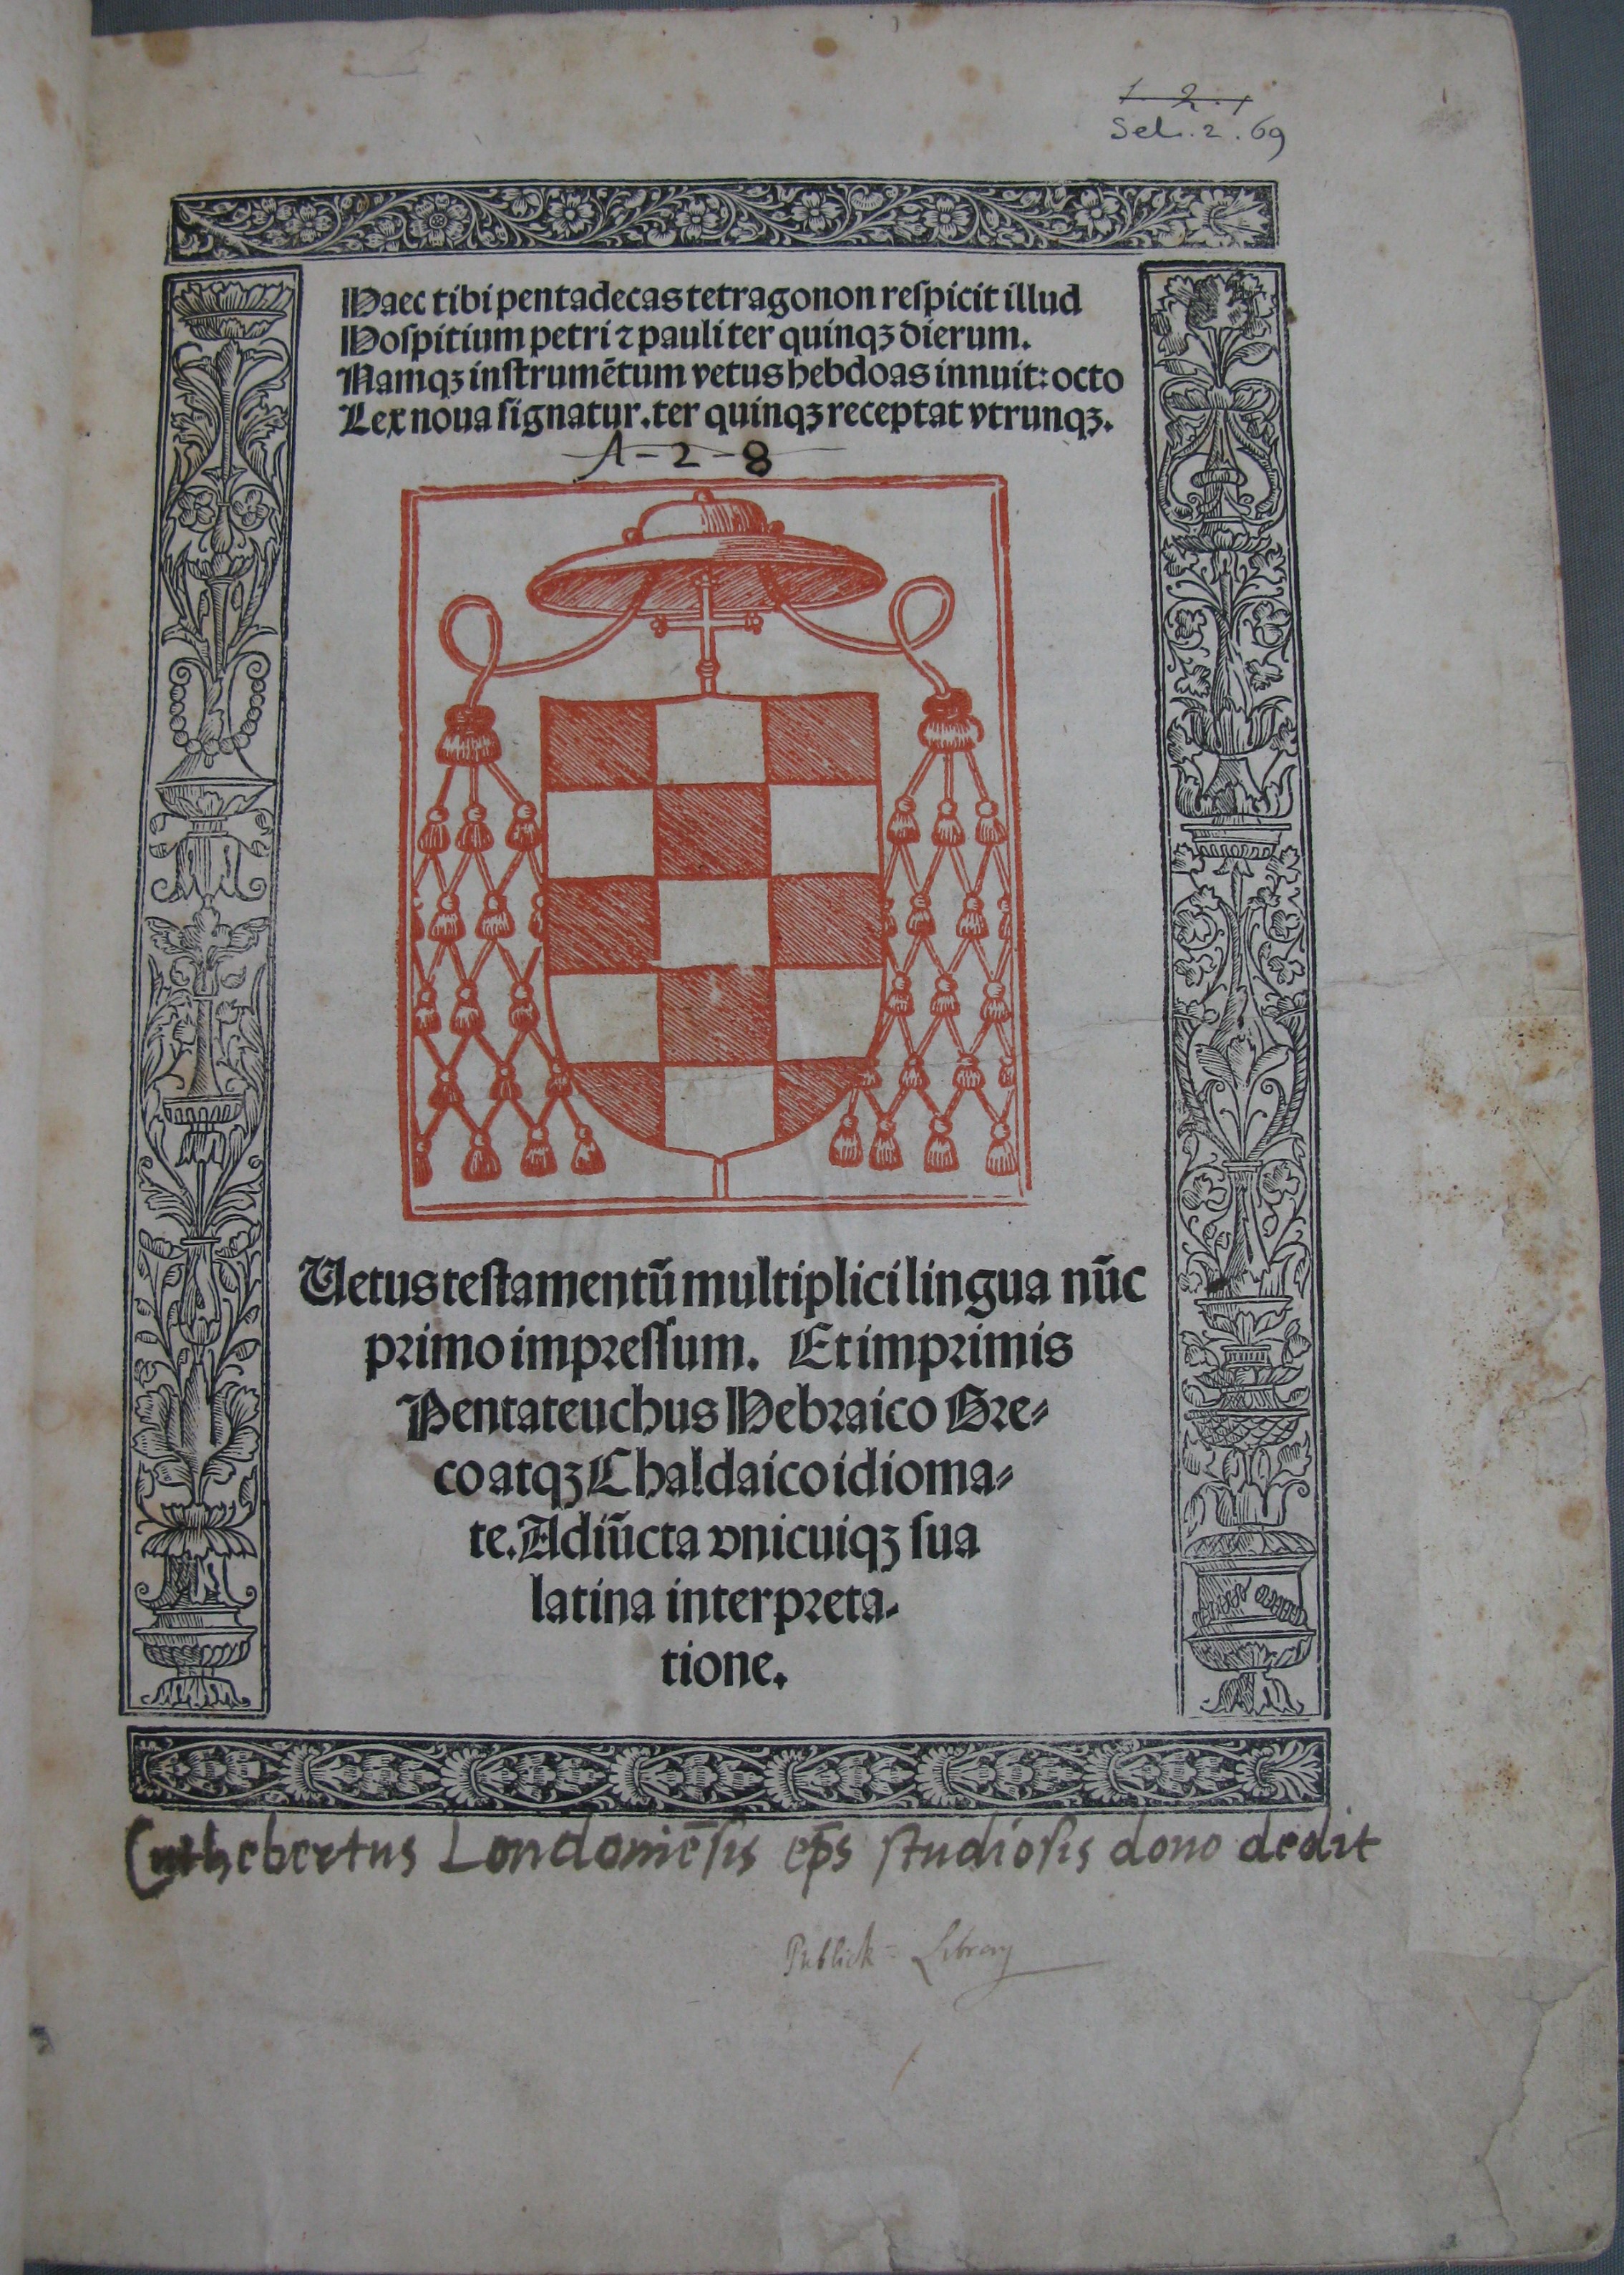 1. 2. 1
Sel. 2. 69
Haec tibi pentadecas tetragonon reſpicit illud
Hoſpitium petri ⁊ pauli ter quinqꝫ dierum.
Namqꝫ inſtrumẽtum vetus hebdoas innuit: octo
Lex noua ſignatur. ter quinqꝫ receptat vtrunqꝫ.
A-2-8
Uetus teſtamentũ multiplici lingua nũc
primo impreſſum. Et imprimis
Pentateuchus Hebraico Gre⸗
co atqꝫ Chaldaico idioma⸗
te. Adiũcta vnicuiqꝫ ſua
latina interpreta⸗
tione.
Cuthebertus Londoniēſis ep̄s ſtudioſis dono dedit
Publick = Library